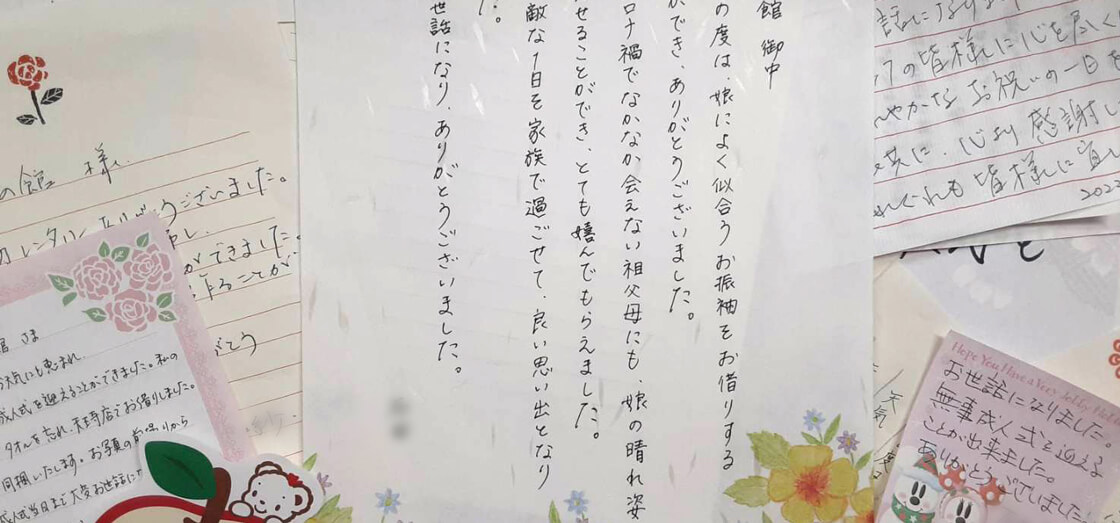 館 御中
の度は、娘によく似合うお振袖をお借りする
ができ、ありがとうございました。
ロナ禍でなかなか会えない祖父母にも、娘の晴れ姿
せることができ、とても嬉んでもらえました。
敵な1日を家族で過ごせて、良い思い出となり
た。
世話になり、ありがとうございました。
の館 様
ありがとうございました。
ができました。
ることが
がとう
さま
お天気にも恵まれ、
成人式を迎えることができました。私の
タオルを忘れ、天王寺店でお借りしました。
同梱いたします。お写真の前撮りから
成人式当日まで大変お世話に
話になり
の皆様に心を尽く
やかなお祝いの一日を
共に、心より感謝し
ぐれも皆様に宜し
202
Hope You Have a Very
お世話になりました。
無事成人式を迎える
ことが出来ました。
ありがとうございました。
天気